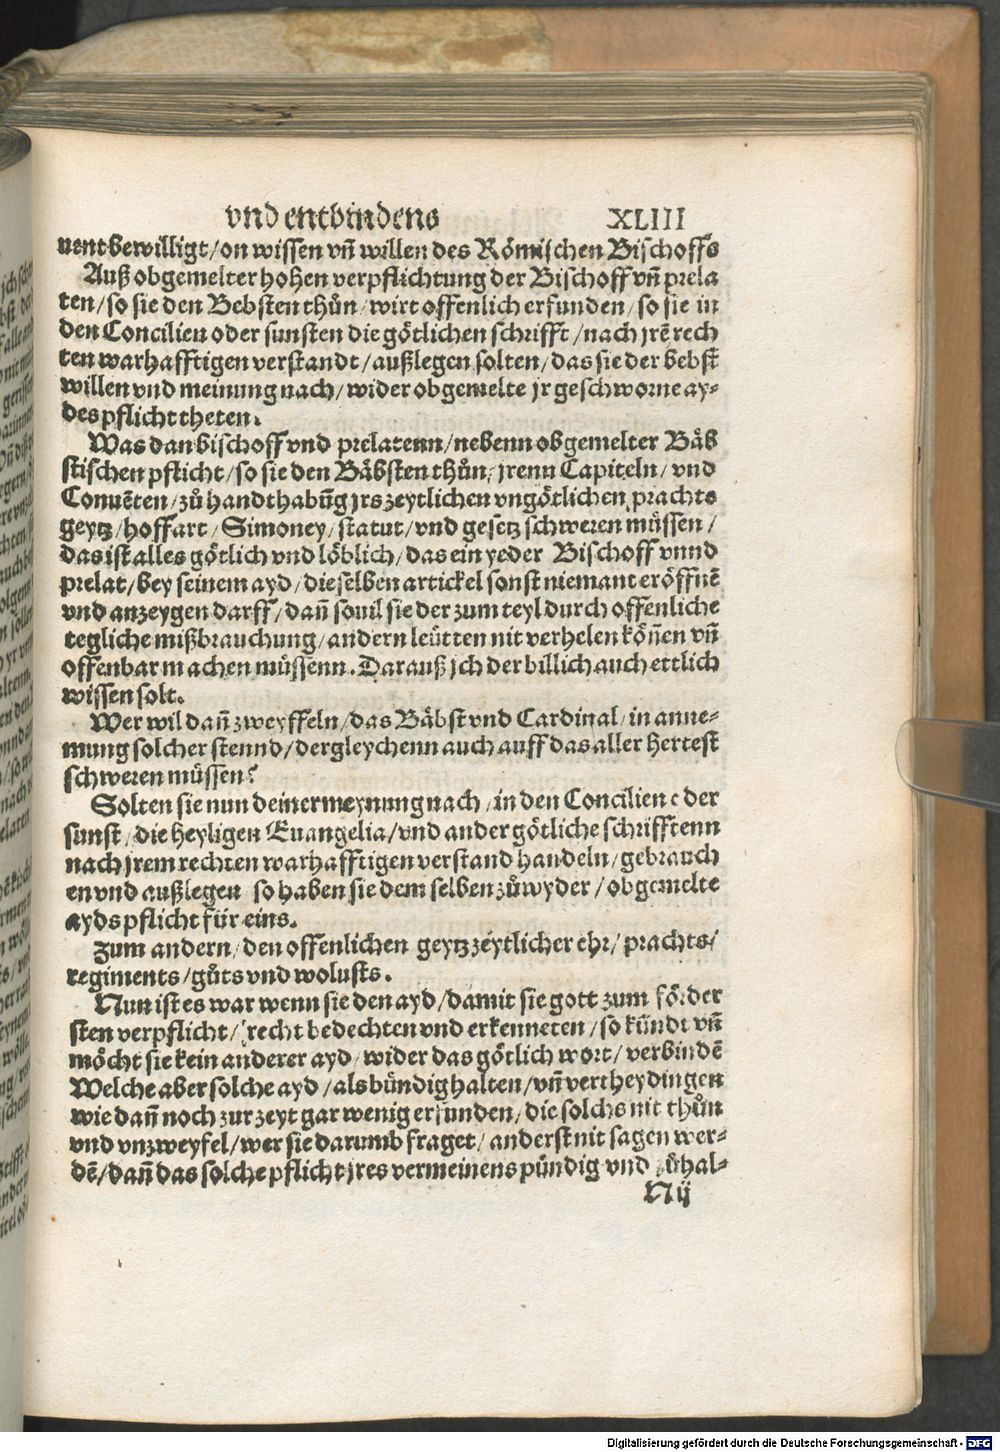 vnd entbindens XLIII
uent bewilligt/on wissen vñ willen des Römischen Bischoffs
Auß obgemelter hohen verpflichtung der Bischoff vñ prela
ten/so sie den Bebsten thůn/wirt offenlich erfunden/so sie in
den Concilien oder sunsten die götlichen schrifft/nach jrē rech
ten warhafftigen verstandt/außlegen solten/das sie der bebst
willen vnd meinung nach/wider obgemelte jr geschworne ay⸗
des pflicht theten.
Was dan bischoff vnd prelatenn/nebenn obgemelter Bäb
stischen pflicht/so sie den Bäbsten thůn/jrenn Capiteln/vnd
Conuēten/zů handthabūg jrs zeytlichen vngötlichen prachts
geytz/hoffart/Simoney/statut/vnd gesetz schweren müssen/
das ist alles götlich vnd löblich/das ein yeder Bischoff vnnd
prelat/bey seinem ayd/die selben artickel sonst niemant eröffnē
vnd anzeygen darff/dañ souil sie der zum teyl durch offenliche
tegliche mißbrauchung/andern leütten nit verhelen köñen vñ
offenbar machen müssenn. Darauß jch der billich auch ettlich
wissen solt.
Wer wil dañ zweyffeln/das Bäbst vnd Cardinal/in anne⸗
mung solcher stennd/dergleychenn auch auff das aller hertest
schweren müssen?
Solten sie nun deiner meynung nach/in den Concilien oder
sunst/die heyligen Euangelia/vnd ander götliche schrifftenn
nach jrem rechten warhafftigen verstand handeln/gebrauch
en vnd außlegen so haben sie dem selben zůwyder/obgemelte
ayds pflicht für eins.
Zum andern/den offenlichen geytz zeytlicher ehr/prachts/
regiments/gůts vnd wolusts.
Nun ist es war wenn sie den ayd/damit sie gott zum förder
sten verpflicht/recht bedechten vnd erkenneten/so kündt vñ
möcht sie kein anderer ayd/wider das götlich wort/verbindē
Welche aber solche ayd/als bündig halten/vñ vertheydingen
wie dañ noch zur zeyt gar wenig erfunden/die solchs nit thůn
vnd vnzweyfel/wer sie darumb fraget/anderst nit sagen wer⸗
dē/dañ das solche pflicht jres vermeinens pündig vnd zůhal⸗
N ij
Digitalisierung gefördert durch die Deutsche Forschungsgemeinschaft - DFG